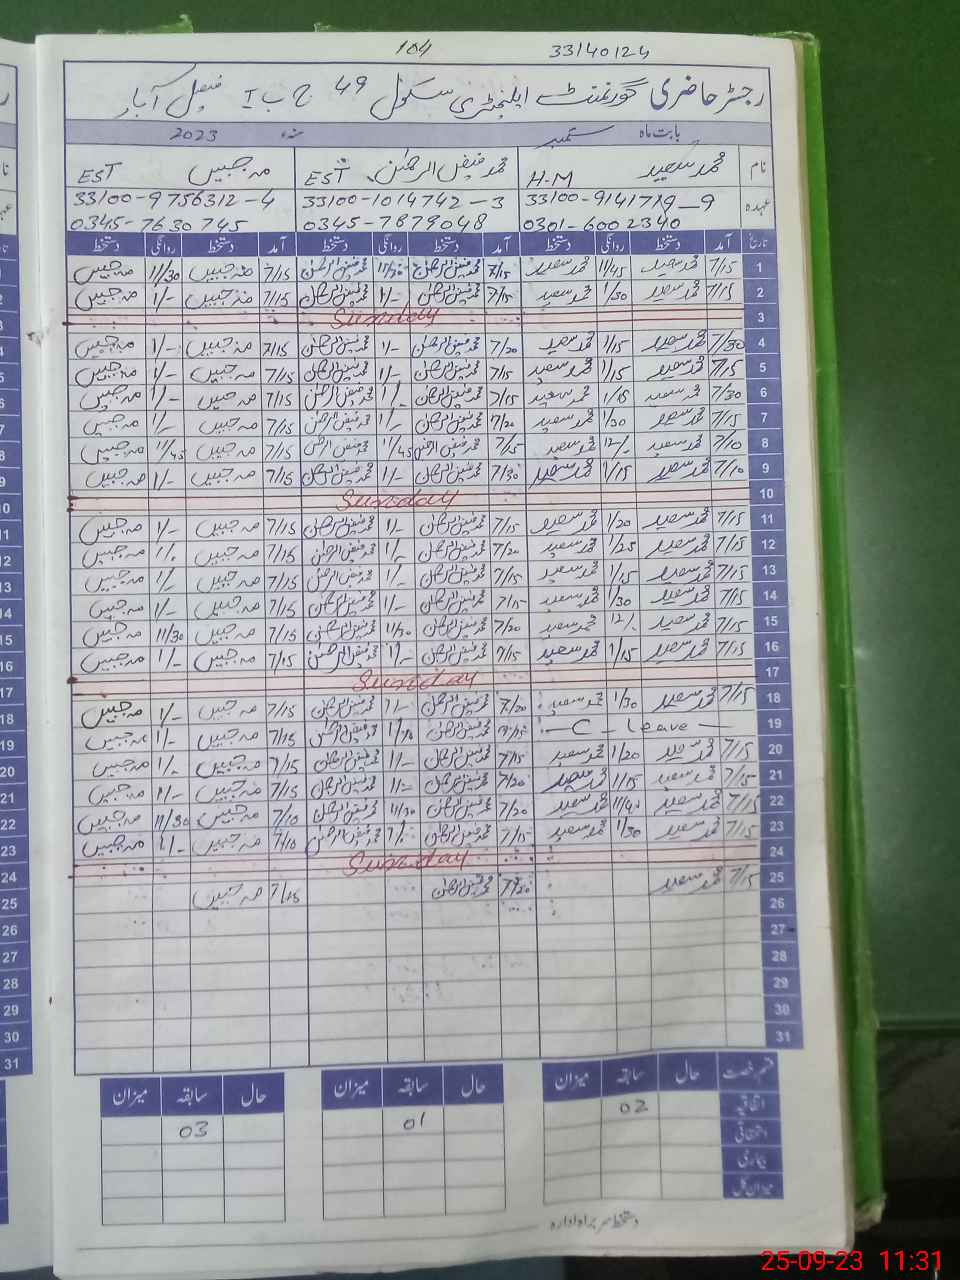 104 33140124
رجسٹر حاضری گورنمنٹ ایلیمنٹری سکول 49 ج ب I فیصل آباد
بابت ماہ ستمبر سنہء 2023
نام محمد سعید H.M محمد فیض الرحمٰن EST مہ جبیں EST
عہدہ 33100-9141719-9 33100-1014742-3 33100-9756312-4
0301-6002340 0345-7879048 0345-7630745
تاریخ آمد دستخط روانگی دستخط آمد دستخط روانگی دستخط آمد دستخط روانگی دستخط
1 7/15 محمد سعید 11/45 محمد سعید 7/15 محمد فیض الرحمٰن 11/30 محمد فیض الرحمٰن 7/15 مہ جبیں 11/30 مہ جبیں
2 7/15 محمد سعید 1/30 محمد سعید 7/15 محمد فیض الرحمٰن 1/- محمد فیض الرحمٰن 7/15 مہ جبیں 1/- مہ جبیں
3 Sunday
4 7/30 محمد سعید 1/15 محمد سعید 7/20 محمد فیض الرحمٰن 1/- محمد فیض الرحمٰن 7/15 مہ جبیں 1/- مہ جبیں
5 7/15 محمد سعید 1/15 محمد سعید 7/15 محمد فیض الرحمٰن 1/- محمد فیض الرحمٰن 7/15 مہ جبیں 1/- مہ جبیں
6 7/30 محمد سعید 1/15 محمد سعید 7/15 محمد فیض الرحمٰن 1/- محمد فیض الرحمٰن 7/15 مہ جبیں 1/- مہ جبیں
7 7/15 محمد سعید 1/30 محمد سعید 7/20 محمد فیض الرحمٰن 1/- محمد فیض الرحمٰن 7/15 مہ جبیں 1/- مہ جبیں
8 7/10 محمد سعید 12/- محمد سعید 7/15 محمد فیض الرحمٰن 11/45 محمد فیض الرحمٰن 7/15 مہ جبیں 11/45 مہ جبیں
9 7/10 محمد سعید 1/15 محمد سعید 7/30 محمد فیض الرحمٰن 1/- محمد فیض الرحمٰن 7/15 مہ جبیں 1/- مہ جبیں
10 Sunday
11 7/15 محمد سعید 1/20 محمد سعید 7/15 محمد فیض الرحمٰن 1/- محمد فیض الرحمٰن 7/15 مہ جبیں 1/- مہ جبیں
12 7/15 محمد سعید 1/25 محمد سعید 7/20 محمد فیض الرحمٰن 1/- محمد فیض الرحمٰن 7/15 مہ جبیں مہ جبیں
13 7/15 محمد سعید 1/15 محمد سعید 7/15 محمد فیض الرحمٰن 1/- محمد فیض الرحمٰن 7/15 مہ جبیں 1/- مہ جبیں
14 7/15 محمد سعید 1/30 محمد سعید 7/15 محمد فیض الرحمٰن 1/- محمد فیض الرحمٰن 7/15 مہ جبیں 1/- مہ جبیں
15 7/15 محمد سعید محمد سعید 7/20 محمد فیض الرحمٰن 11/30 محمد فیض الرحمٰن 7/15 مہ جبیں 11/30 مہ جبیں
16 7/15 محمد سعید 1/15 محمد سعید 7/15 محمد فیض الرحمٰن 1/- محمد فیض الرحمٰن 7/15 مہ جبیں 1/- مہ جبیں
17 Sunday
18 7/15 محمد سعید 1/30 محمد سعید 7/20 محمد فیض الرحمٰن 1/- محمد فیض الرحمٰن 7/15 مہ جبیں 1/- مہ جبیں
19 - C - leave - 7/15 محمد فیض الرحمٰن محمد فیض الرحمٰن 7/15 مہ جبیں 1/- مہ جبیں
20 7/15 محمد سعید 1/20 محمد سعید 7/15 محمد فیض الرحمٰن 1/- محمد فیض الرحمٰن 7/15 مہ جبیں 1/- مہ جبیں
21 7/15 محمد سعید 1/15 محمد سعید 7/20 محمد فیض الرحمٰن 1/- محمد فیض الرحمٰن 7/15 مہ جبیں 1/- مہ جبیں
22 7/15 محمد سعید 11/40 محمد سعید 7/20 محمد فیض الرحمٰن 11/30 محمد فیض الرحمٰن 7/10 مہ جبیں 11/30 مہ جبیں
23 7/15 محمد سعید 1/30 محمد سعید 7/15 محمد فیض الرحمٰن محمد فیض الرحمٰن 7/10 مہ جبیں 1/- مہ جبیں
24 Sunday
25 7/15 محمد سعید 7/20 محمد فیض الرحمٰن 7/15 مہ جبیں
26
27
28
29
30
31
قسم رخصت حال سابقہ میزان حال سابقہ میزان حال سابقہ میزان
اتفاقیہ 02 01 03
استحقاقی
بیماری
میزان کل
دستخط سربراہ ادارہ
25-09-23 11:31